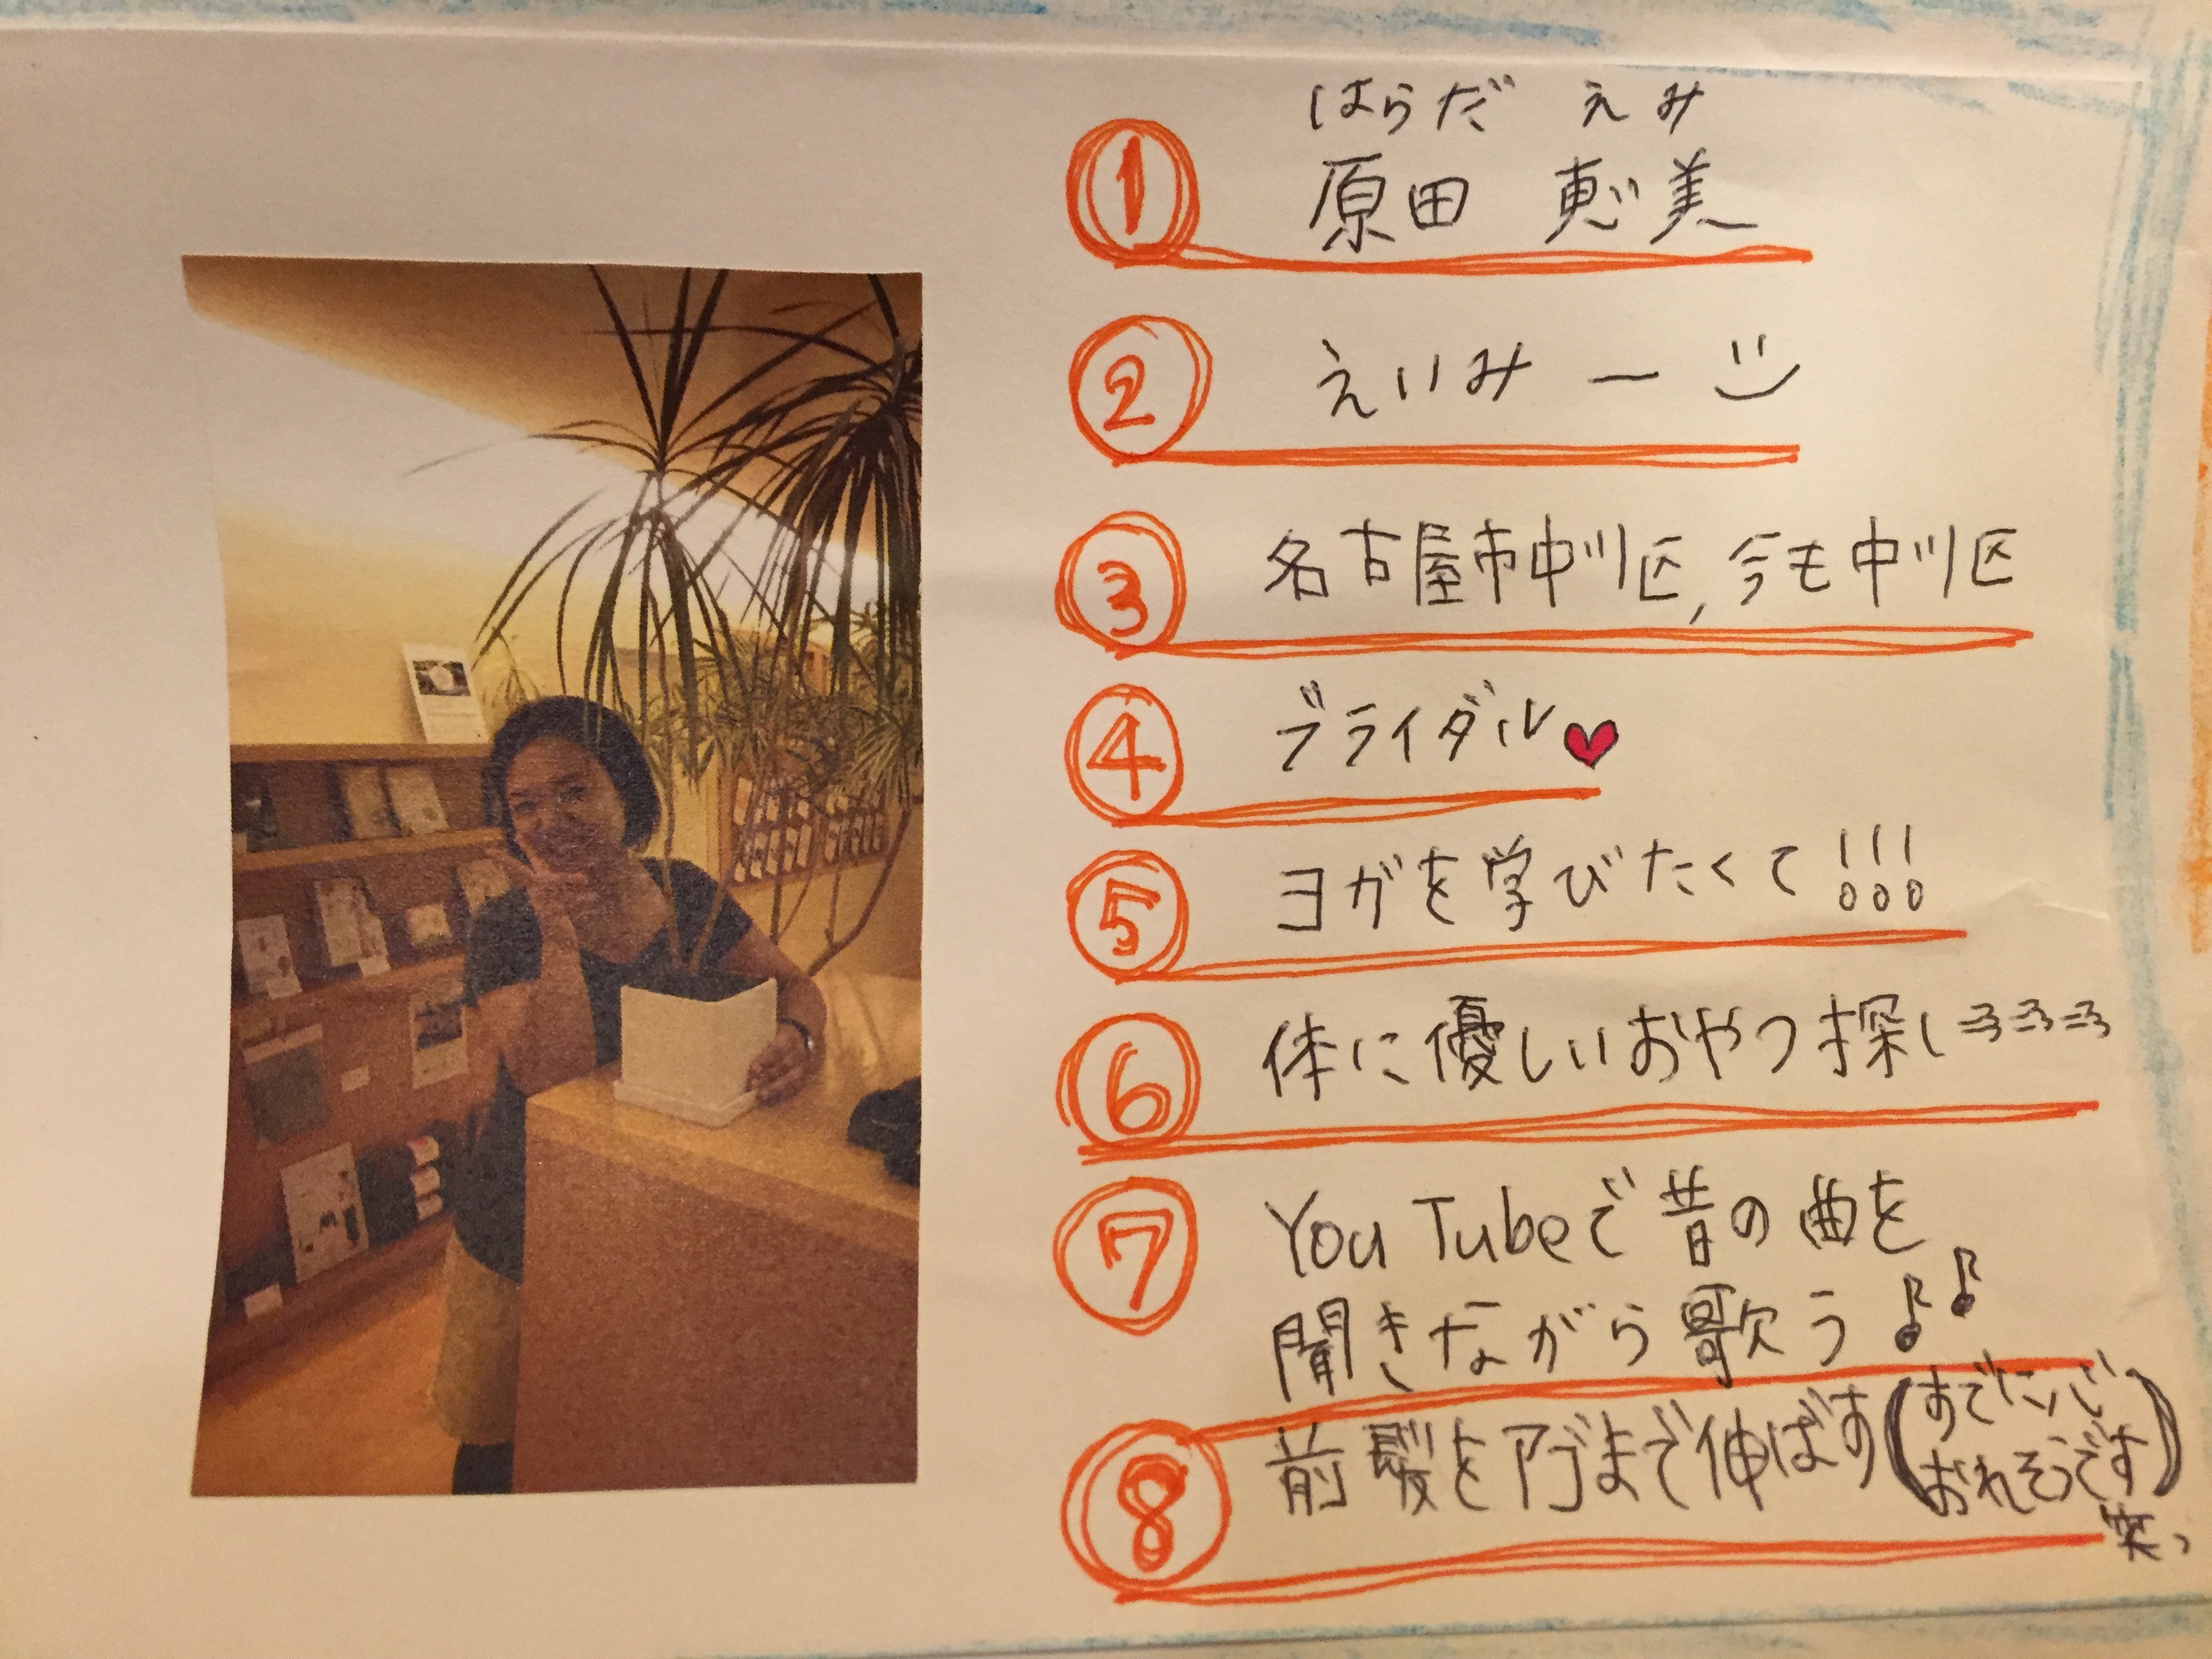 はらだ えみ
① 原田 恵美
② えいみー
③ 名古屋市中川区, 今も中川区
④ ブライダル♥
⑤ ヨガを学びたくて!!!
⑥ 体に優しいおやつ探し
⑦ YouTubeで昔の曲を
聞きながら歌う♪♪
⑧ 前髪をアゴまで伸ばす(すでに心
おれそうです)
笑っ